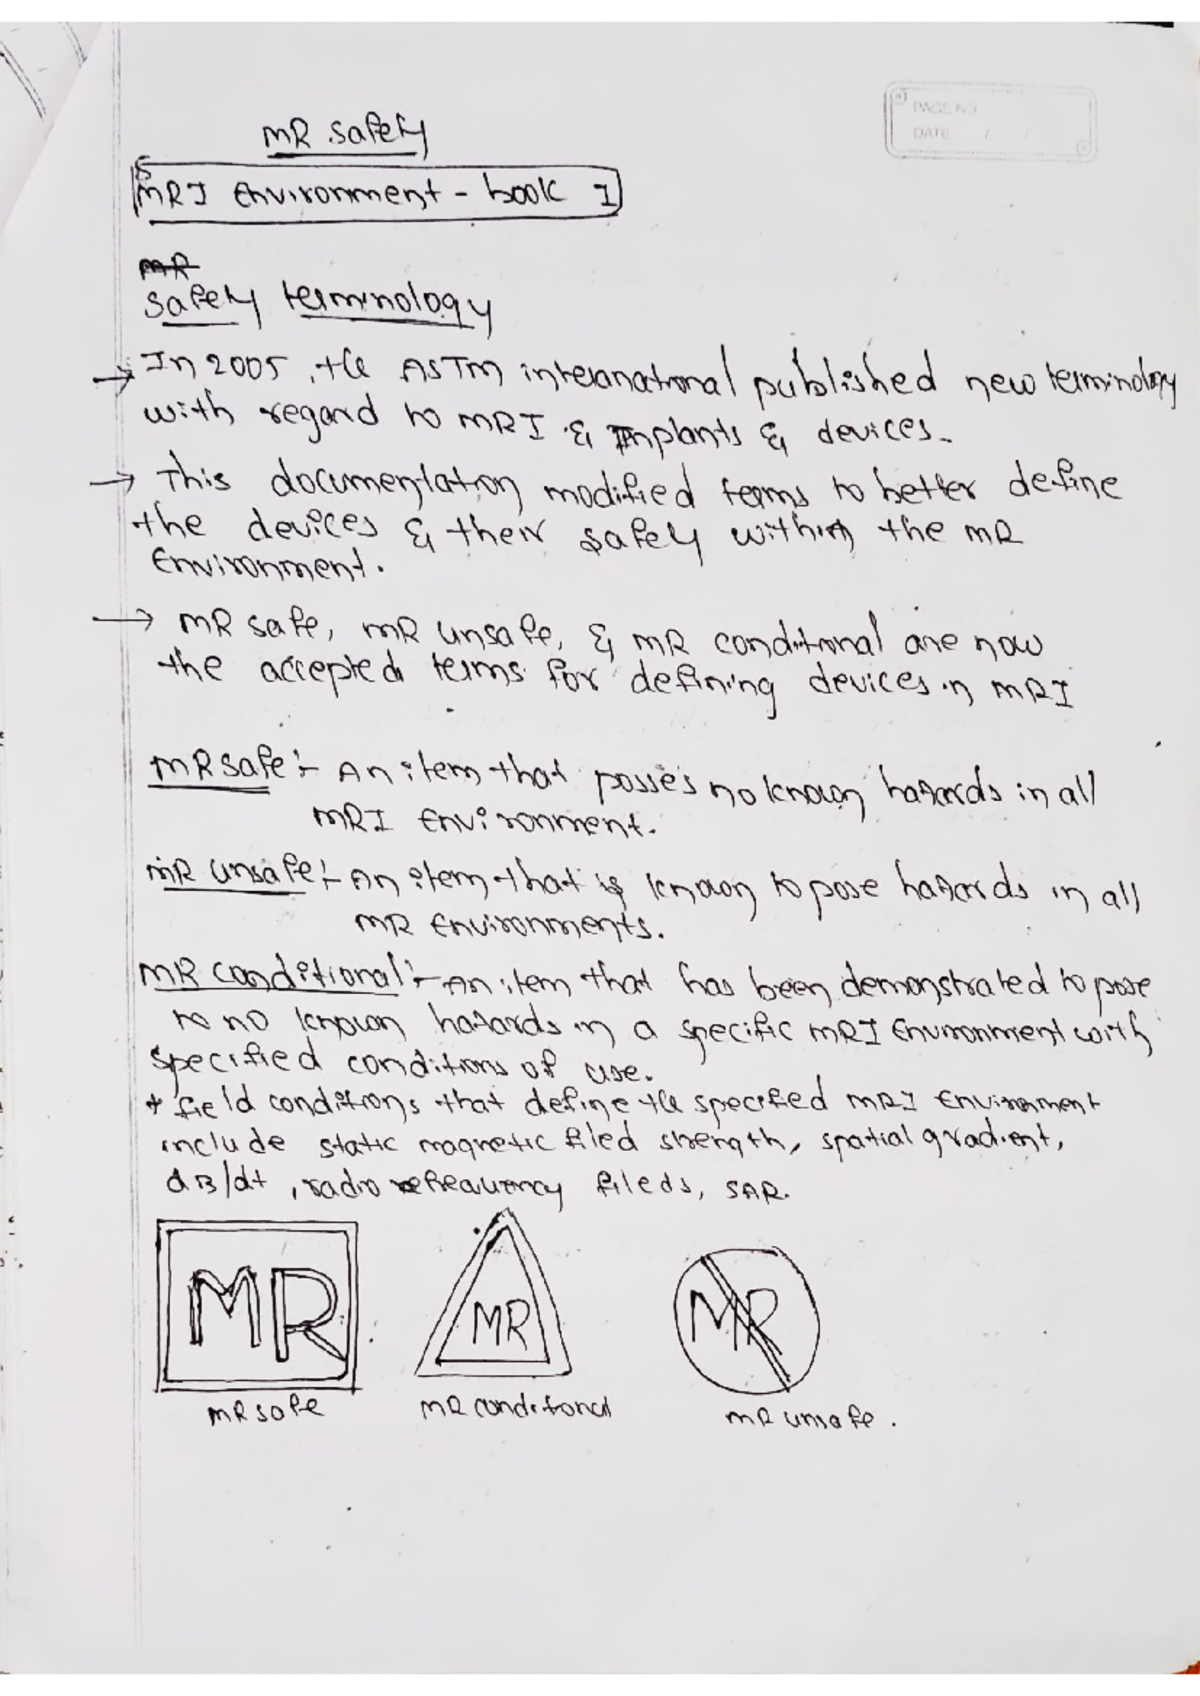 PAGE NO
DATE / /
MR safety
MRI Environment - book I
MR
Safety terminology
→ In 2005, the ASTM international published new terminology
with regard to MRI & Implants & devices.
→ This documentation modified terms to better define
the devices & their safety within the MR
Environment.
→ MR safe, MR unsafe, & MR conditional are now
the accepted terms for defining devices in MRI
MR safe :- An item that posses no known hazards in all
MRI Environment.
MR unsafe :- An item that is known to pose hazards in all
MR Environments.
MR conditional :- An item that has been demonstrated to pose
to no known hazards in a specific MRI Environment with
specified conditions of use.
* field conditions that define the specified MRI Environment
include static magnetic filed strength, spatial gradient,
dB/dt, radio refrequency fileds, SAR.
MR
MR
MR
MR safe
MR conditional
MR unsafe.